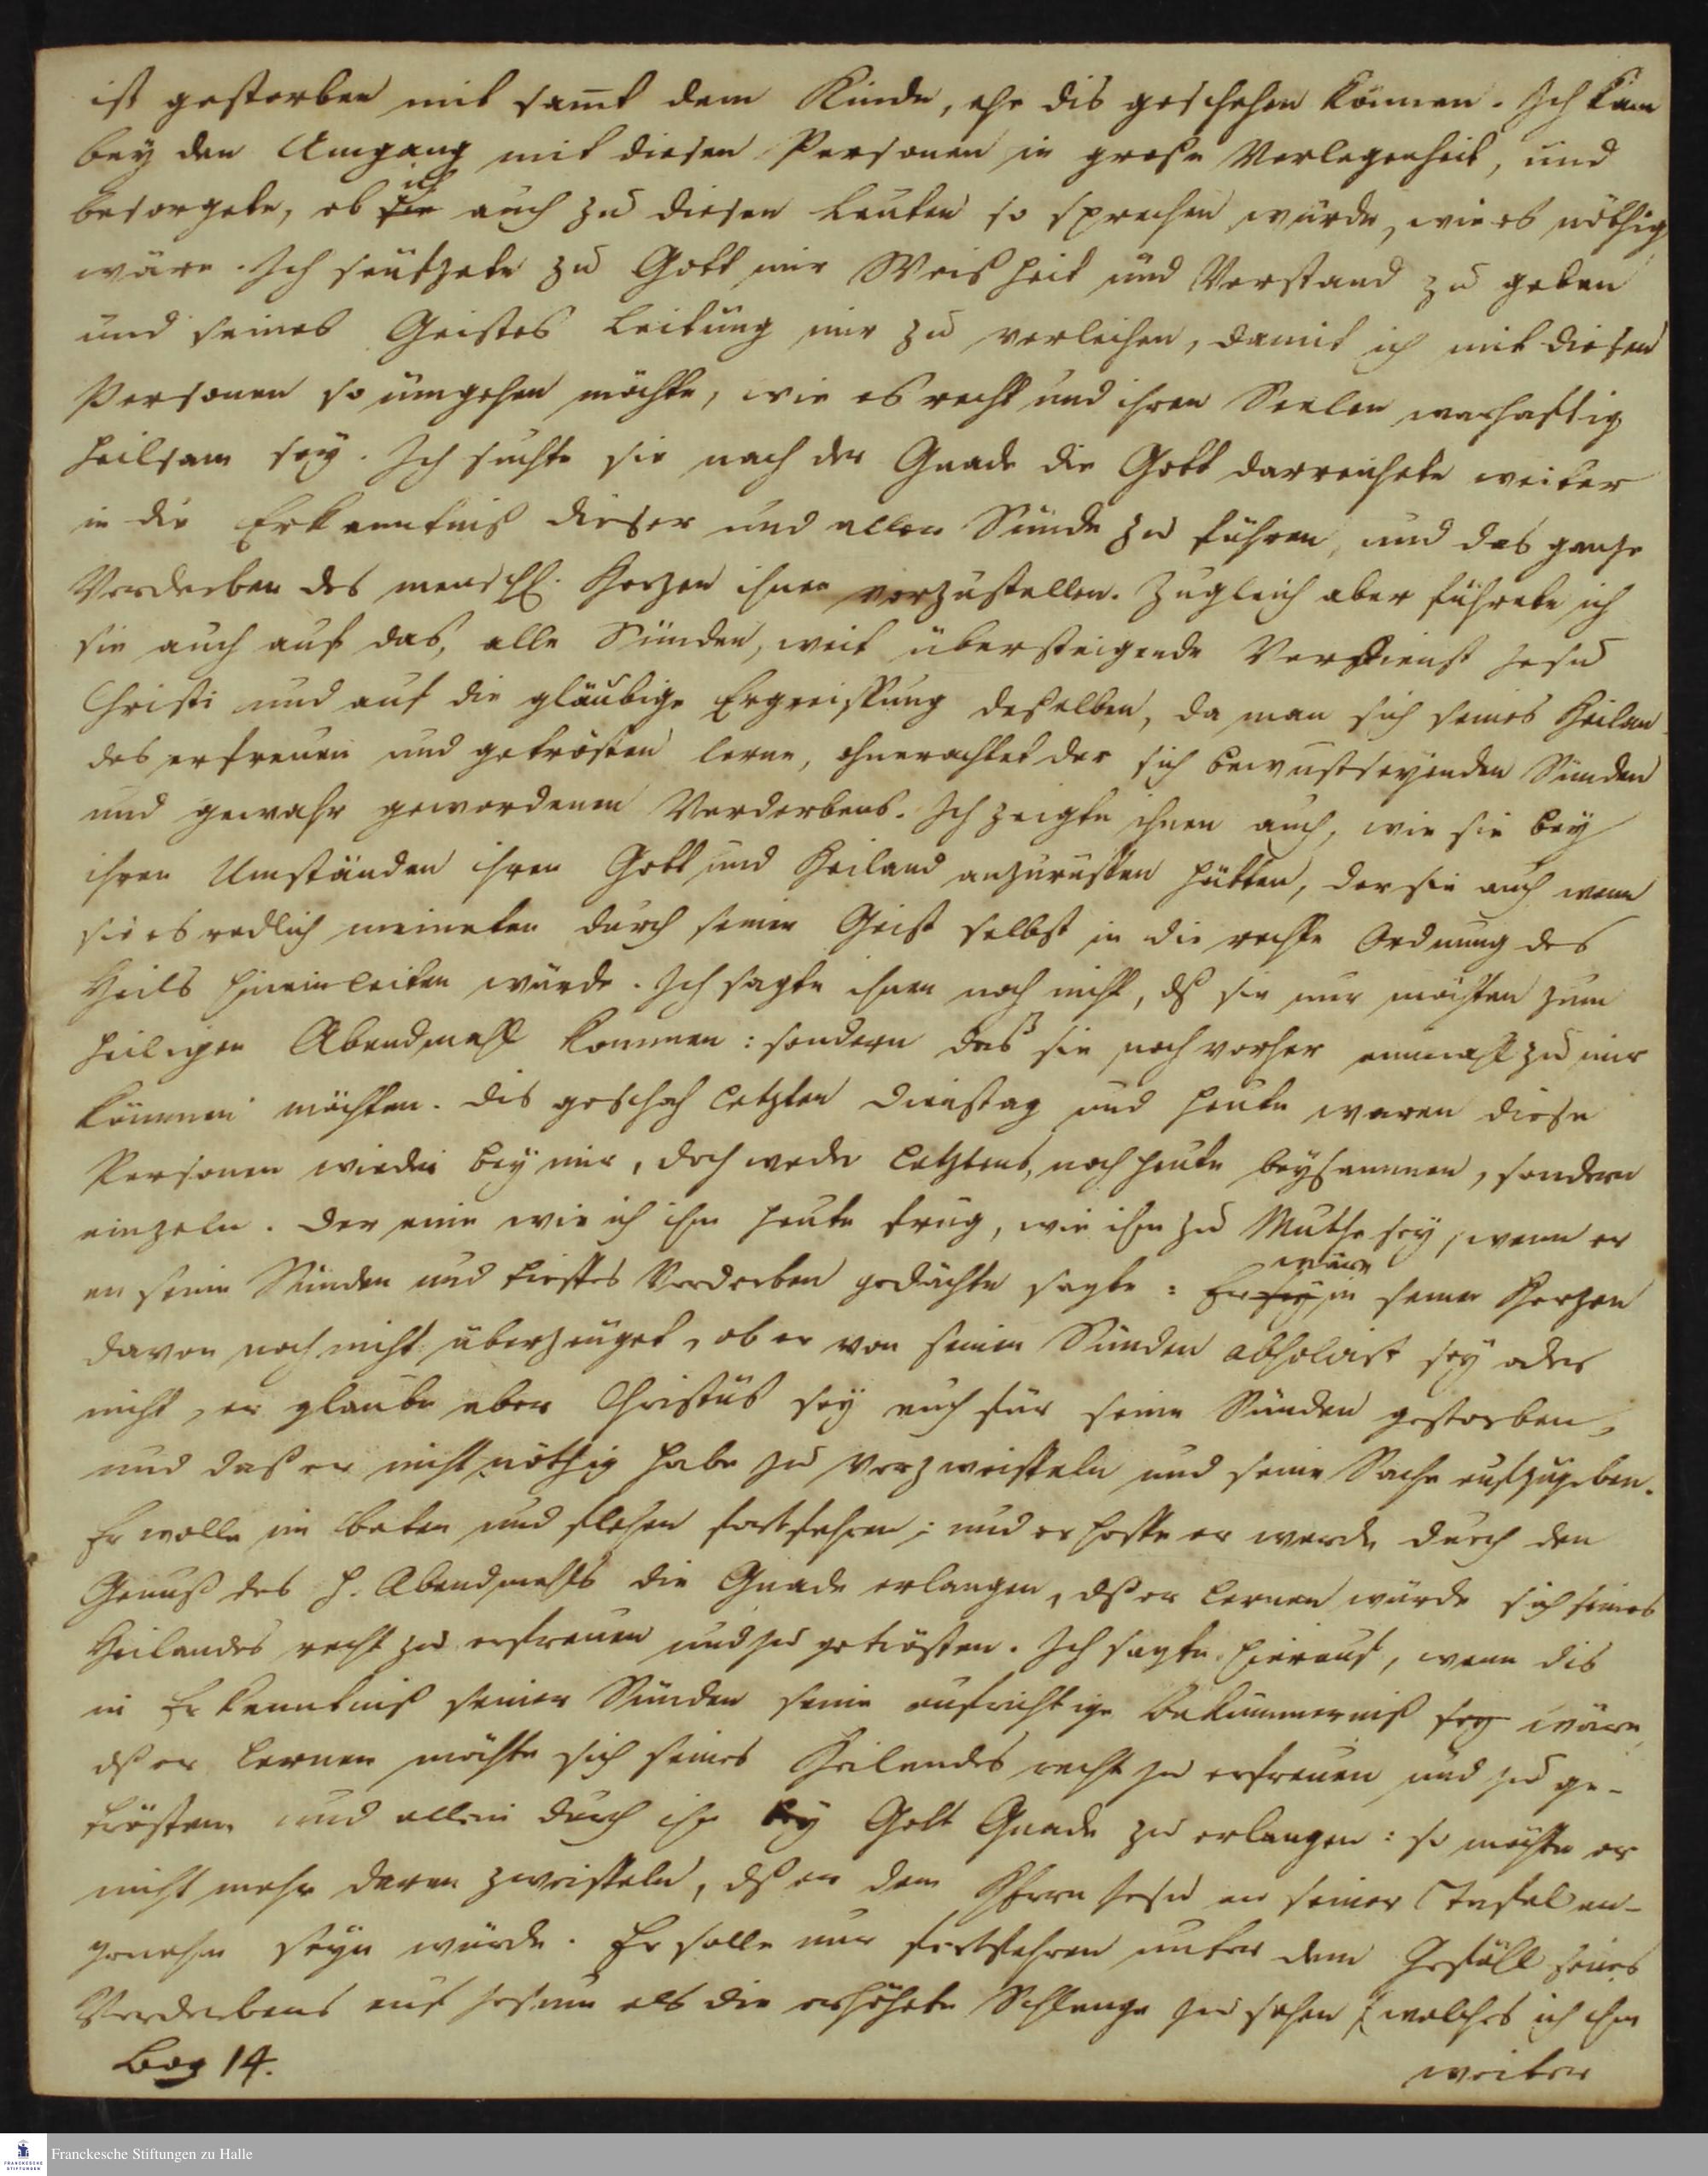 ist gestorben mit sam̅t dem Kinde, ehe dis geschehen können. Ich kam
bey den Umgang mit diesen Personen in große Verlegenheit, und
besorgete, ob sie ich auch zu diesen Leuten so sprechen würde, wie es nöthig
wäre. Ich seufzete zu Gott mir Weisheit und Verstand zu geben
und seines Geistes Leitung mir zu verleihen, damit ich mit diesen
Personen so umgehen möchte, wie es recht und ihren Seelen warhaftig
heilsam sey. Ich suchte sie nach der Gnade die Gott darreichete weiter
in die Erkenntniß dieser und aller Sünde zu führen, und das ganze
Verderben des menschl. Herzen ihnen vorzustellen. Zugleich aber führete ich
sie auch auf das, alle Sünden, weit übersteigende Verdienst Jesu
Christi und auf die gläubige Ergreiffung deßelben, da man sich seines Heilan-
des erfreuen und getrösten lerne, ohnerachtet der sich bewustseyenden Sünden
und gewahr gewordenen Verderbens. Ich zeigte ihnen auch, wie sie bey
ihren Umständen ihren Gott und Heiland anzuruffen hätten, der sie auch wenn
sie es redlich meineten durch seinen Geist selbst in die rechte Ordnung des
Heils hineinleiten würde. Ich sagte ihnen noch nicht, dß sie nur möchten zum
heiligen Abendmahl kommen: sondern daß sie noch vorher einmahl zu mir
kommen möchten. Dis geschah letzten Dienstag und heute waren diese
Personen wieder bey mir, doch weder letztens, noch heute beysammen, sondern
einzeln. Der eine wie ich ihn heute frug, wie ihm zu Muthe sey, wenn er
an seine Sünden und tieffes Verderben gedächte sagte: Er sey wäre in seinem Herzen
davon noch nicht überzeuget, ob er von seinen Sünden absolvirt sey oder
nicht, er glaube aber Christus sey auch für seine Sünden gestorben,
und daß er nicht nöthig habe zu verzweiffeln und seine Sache aufzugeben.
Er wolle im Beten und flehen fortfahren; und er hoffe er werde durch den
Genuß des h. Abendmahls die Gnade erlangen, dß er lernen würde sich seines
Heilandes recht zu erfreuen und zu getrösten. Ich sagte hierauf, wenn dis
in Erkenntniß seiner Sünden seine aufrichtige Bekümmerniß sey wäre,
dß er lernen möchte sich seines Heilandes recht zu erfreuen und zu ge-
trösten und allein durch ihn bey Gott Gnade zu erlangen: so möchte er
nicht mehr daran zweiffeln, dß er dem Herrn Jesu an seiner Tafel an-
genehm seyn würde. Er solle nur fortfahren unter dem Gefühl seines
Verderbens auf Jesum als die erhöhete Schlange zu sehen (welches ich ihm
Bog 14.
weiter
Franckesche Stiftungen zu Halle